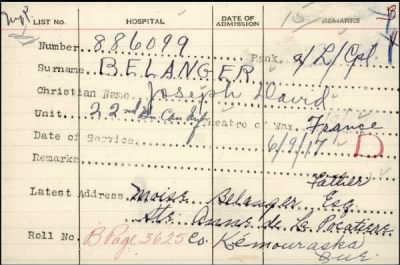 LIST No. HOSPITAL DATE OF ADMISSION REMARKS
Number 886099 Rank a/L/Cpl.
Surname BELANGER
Christian Name Joseph David
Unit 22nd Bn Can Inf Theatre of War France
Date of Service 6/9/17 D
Remarks
Father
Latest Address Moise Belanger Esq
Ste Anne de La Pocatiere
Roll No. B Page 3625 Co. Kemouraska
Que